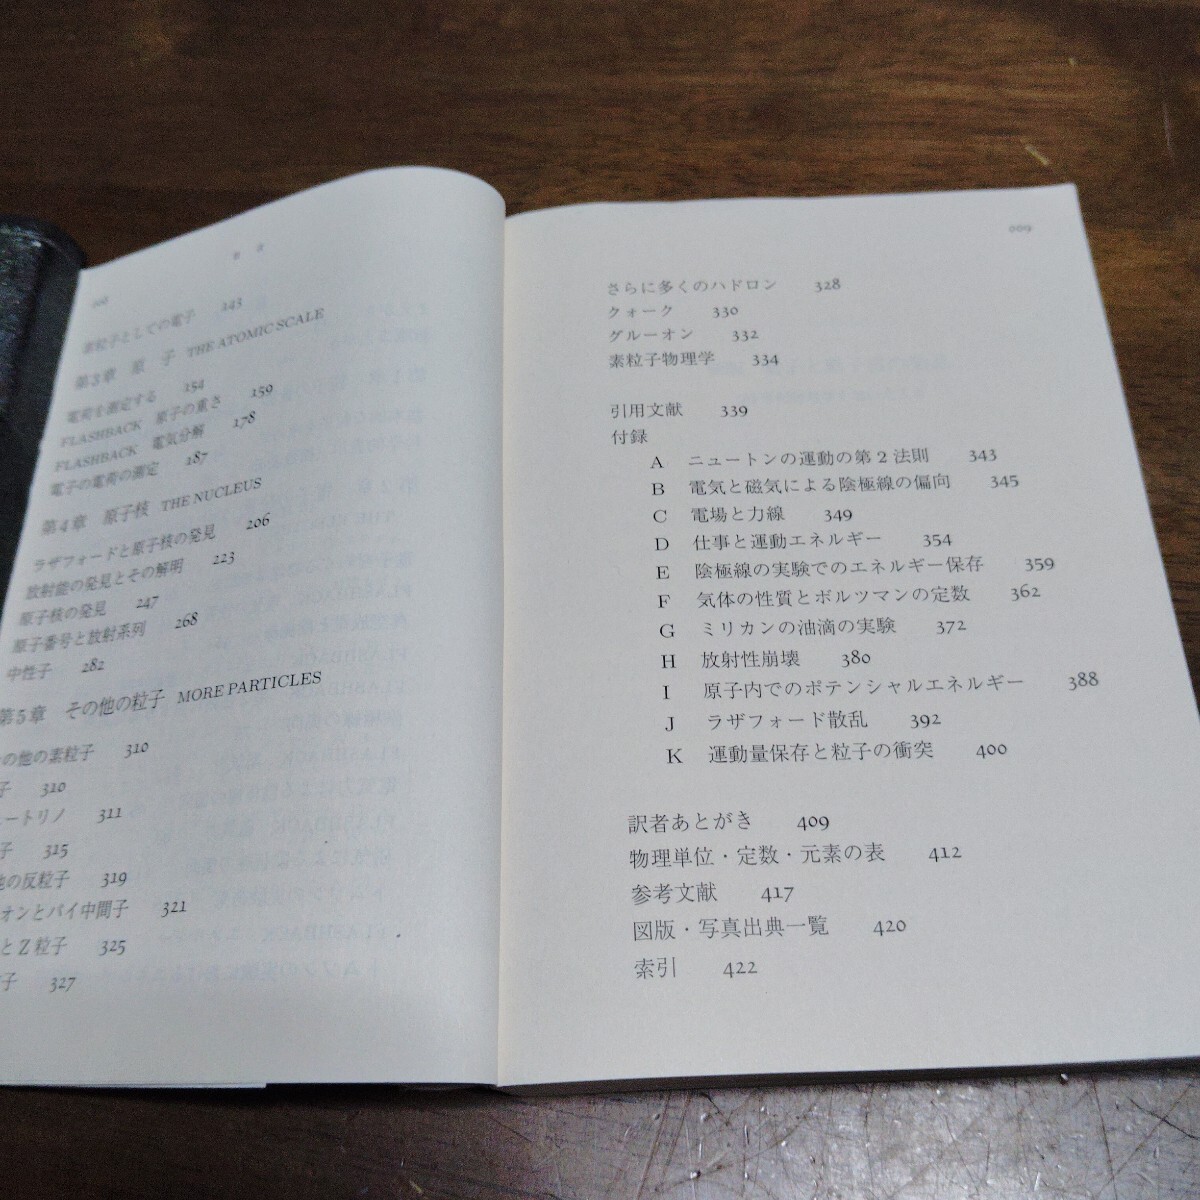 008
目 次
素粒子としての電子 143
第3章 原 子 THE ATOMIC SCALE
電荷を測定する 154
FLASHBACK 原子の重さ 159
FLASHBACK 電気分解 178
電子の電荷の測定 187
第4章 原子核 THE NUCLEUS
ラザフォードと原子核の発見 206
放射能の発見とその解明 223
原子核の発見 247
原子番号と放射系列 268
中性子 282
第5章 その他の粒子 MORE PARTICLES
の他の素粒子 310
子 310
ュートリノ 311
子 315
他の反粒子 319
オンとパイ中間子 321
とZ粒子 325
子 327
009
さらに多くのハドロン 328
クォーク 330
グルーオン 332
素粒子物理学 334
引用文献 339
付録
A ニュートンの運動の第2法則 343
B 電気と磁気による陰極線の偏向 345
C 電場と力線 349
D 仕事と運動エネルギー 354
E 陰極線の実験でのエネルギー保存 359
F 気体の性質とボルツマンの定数 362
G ミリカンの油滴の実験 372
H 放射性崩壊 380
I 原子内でのポテンシャルエネルギー 388
J ラザフォード散乱 392
K 運動量保存と粒子の衝突 400
訳者あとがき 409
物理単位・定数・元素の表 412
参考文献 417
図版・写真出典一覧 420
索引 422